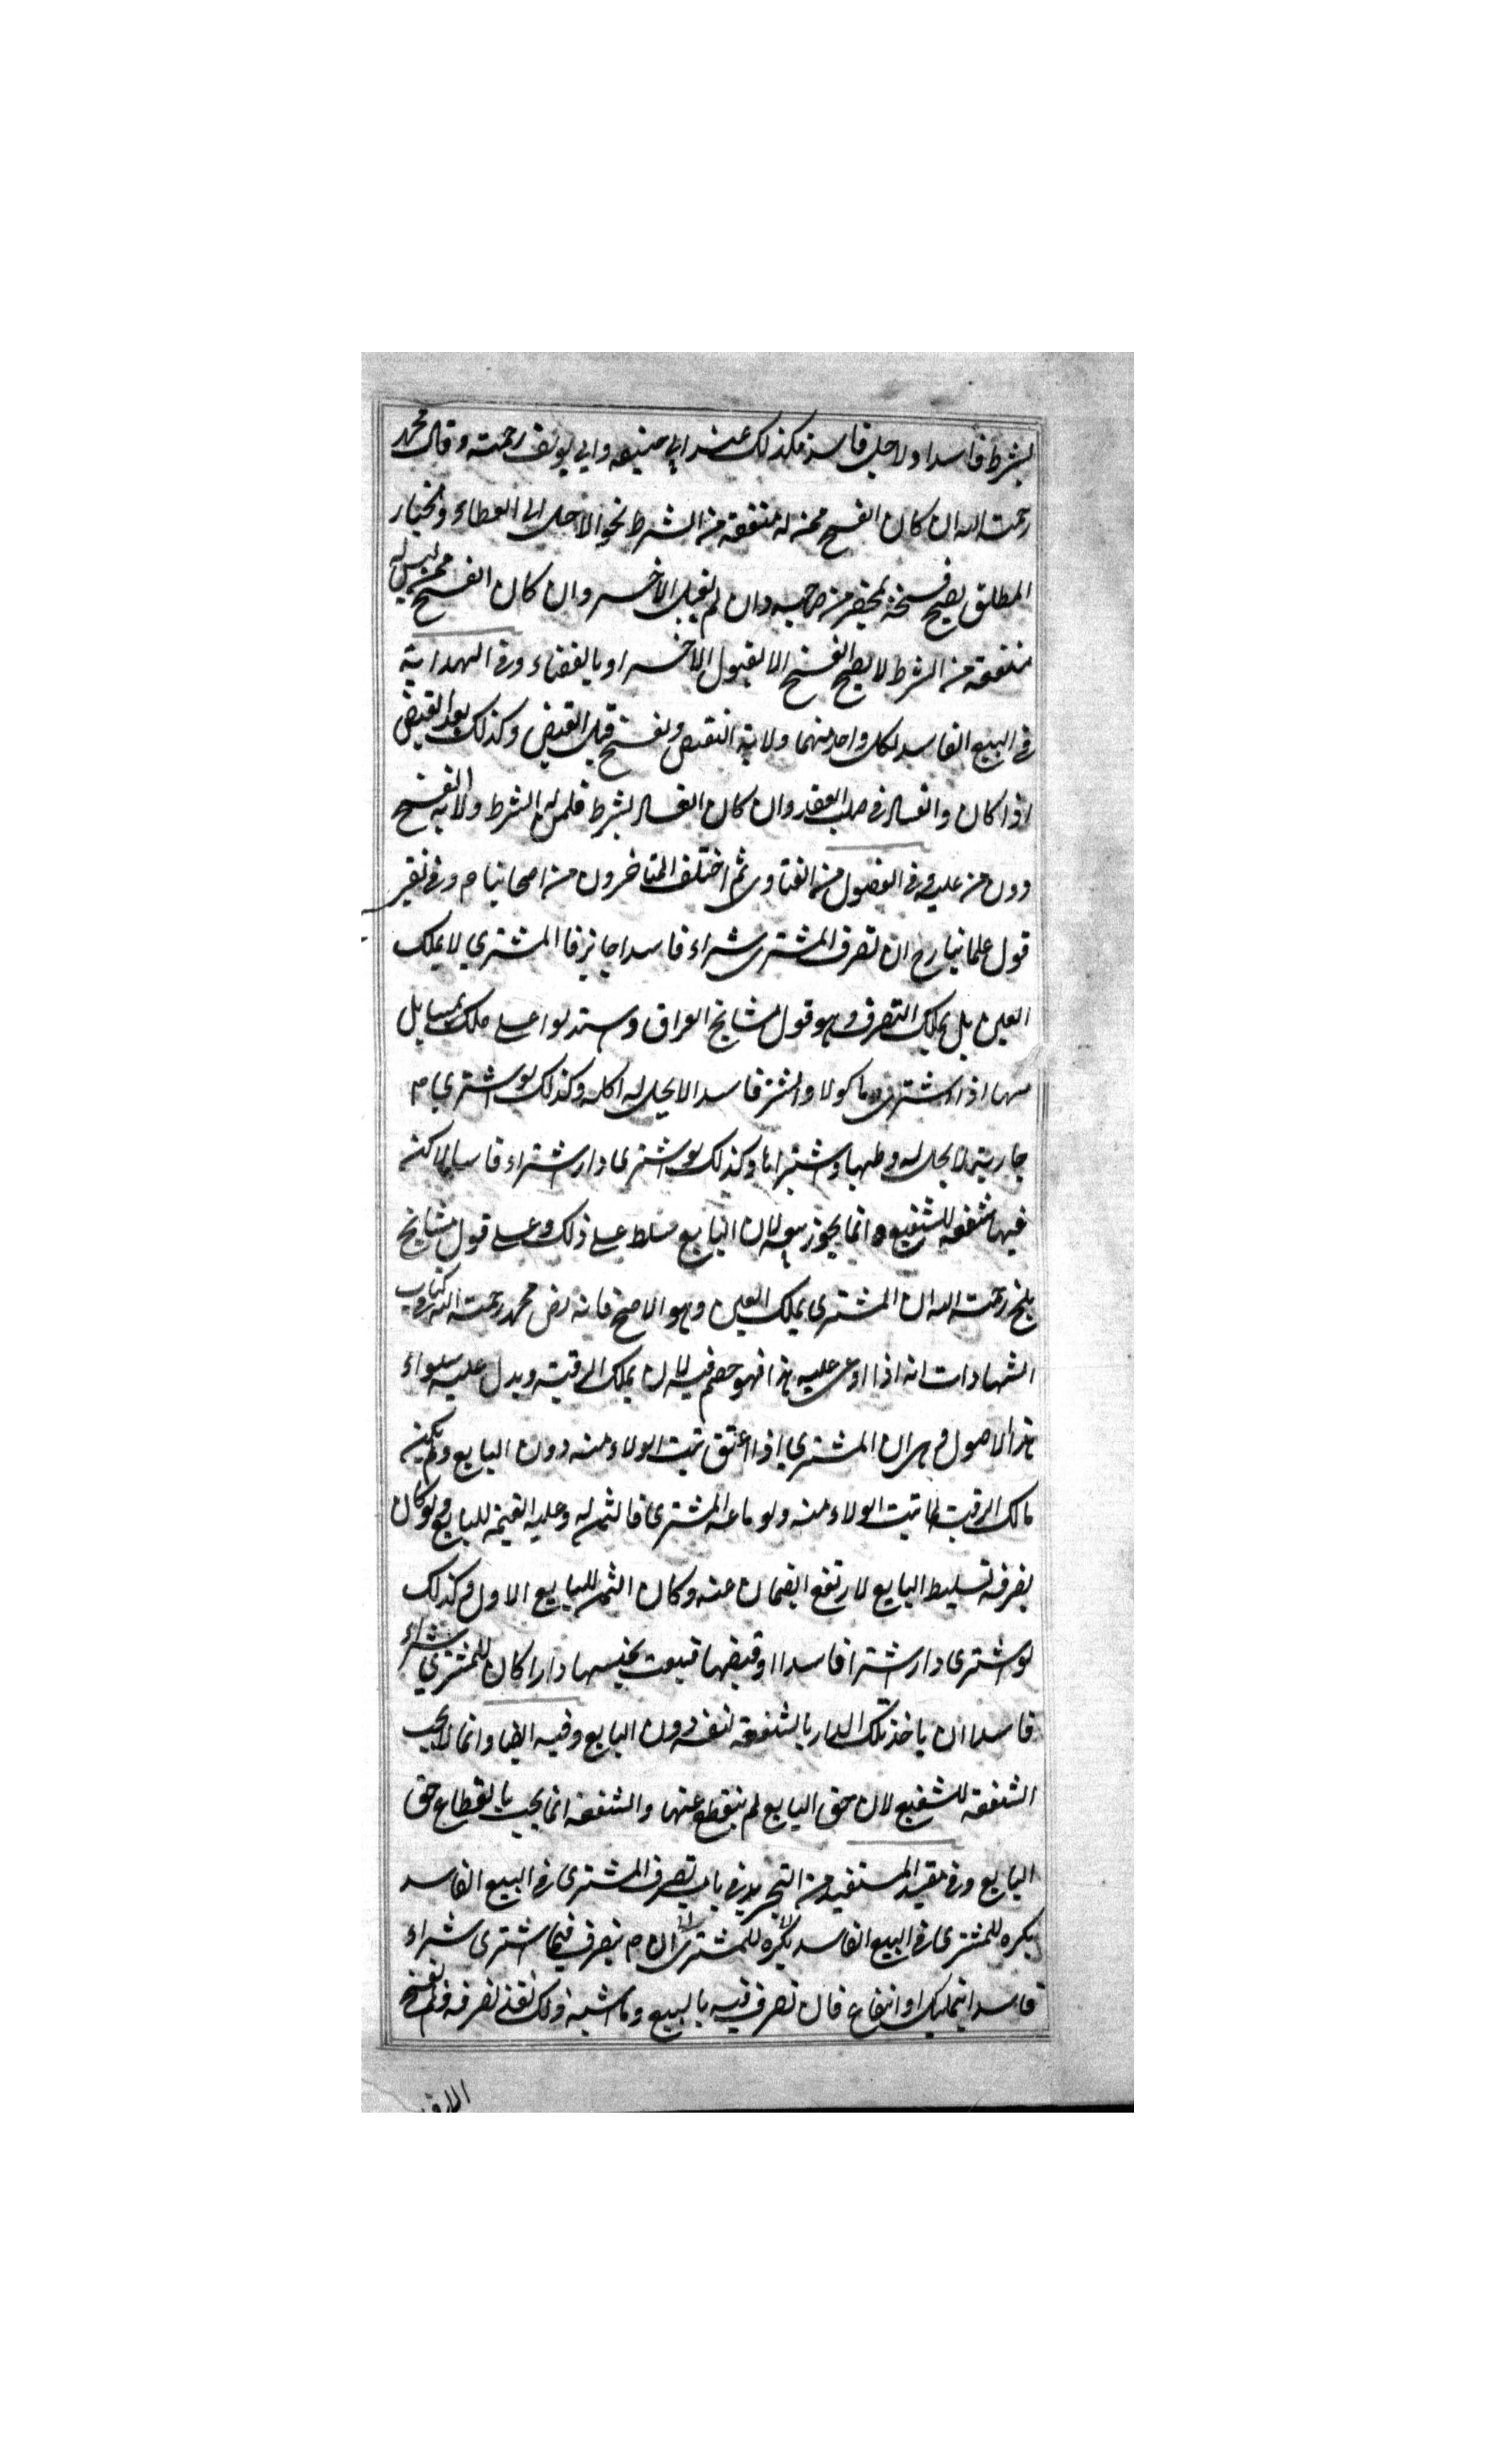 بشرط فاسد اولاجل فاسد فكذلك عند ابي حنيفه وابي يوسف رحمته وقال محمد
رحمت الله ان كان الفسخ ممن له منفعة من الشرط نحو الاجل الى العطاء والخيار
المطلق يصح فسخه بمحضر من صاحبه وان لم يقبل الاخر وان كان الفسخ ممن ليس له
منفعة من الشرط لا يصح الفسخ الا بقبول الاخر او بالقضاء وفي الهداية
في البيع الفاسد لكل واحد منهما ولاية النقض والفسخ قبل القبض وكذلك بعد القبض
اذا كان والفساد في صلب العقد وان كان الفساد بشرط فلمن له الشرط ولاية الفسخ
دون من عليه وفي الفصول من الفتاوى ثم اختلف المتاخرون من اصحابنا م وفي
قول علمائنا رح ان تصرف المشترى شراء فاسدا جائز فا المشتري لا يملك
العين بل يملك التصرف وهو قول مشايخ العراق واستدلوا على ملك بمسايل
منها اذا اشترى ماكولا والشر فاسدا لا يحل له اكله وكذلك لو اشترى م
جارية لا يحل له وطيها واستبراها وكذلك لو اشترى دار اشتراء فاسدا لاكنه
فيها شفعه للشفيع ه انما يجوز بيعه لان البايع مسلط على ذلك وعلى قول مشايخ
بلخ رحمت الله ان المشترى يملك العين وهو الاصح فانه نص محمد رحمت الله كتاب
الشهادات انه اذا ادعى عليه هذا فهو خصم فيه لان يملك الرقبة ويدل عليه سواء
هذا الاصول م ان المشتري اذا اعتق ثبت الولاء منه دون البايع ولم يكن
مالك الرقبة لما ثبت الولاء منه ولو باعه المشترى فالثمن له وعليه القيمة للبايع ولو كان
بصرفه تسليط البايع لارتفع الضمان عنه وكان الثمن للبايع الاول وكذلك
لو اشترى دار اشترا فاسدا وقبضها فبيعت بجنبها دارا كان للمشتري شراء
فاسدا ان ياخذ تلك الدار بالشفعة لنفسه دون البايع وفيه ايضا وانما لا يجب
الشفعة للشفيع لان حق البايع لم ينقطع عنها والشفعة انما يجب بانقطاع حق
البايع وفي مقيد المستفيد من التجريد في باب تصرف المشترى في البيع الفاسد
يكره للمشترى في البيع الفاسد يكره للمشترى ان م يتصرف فيما اشترى شراء
فاسدا بتمليك او انتفاع فان تصرف فيه بالبيع وما اشبه ذلك نفذ تصرفه ولم يفسخ